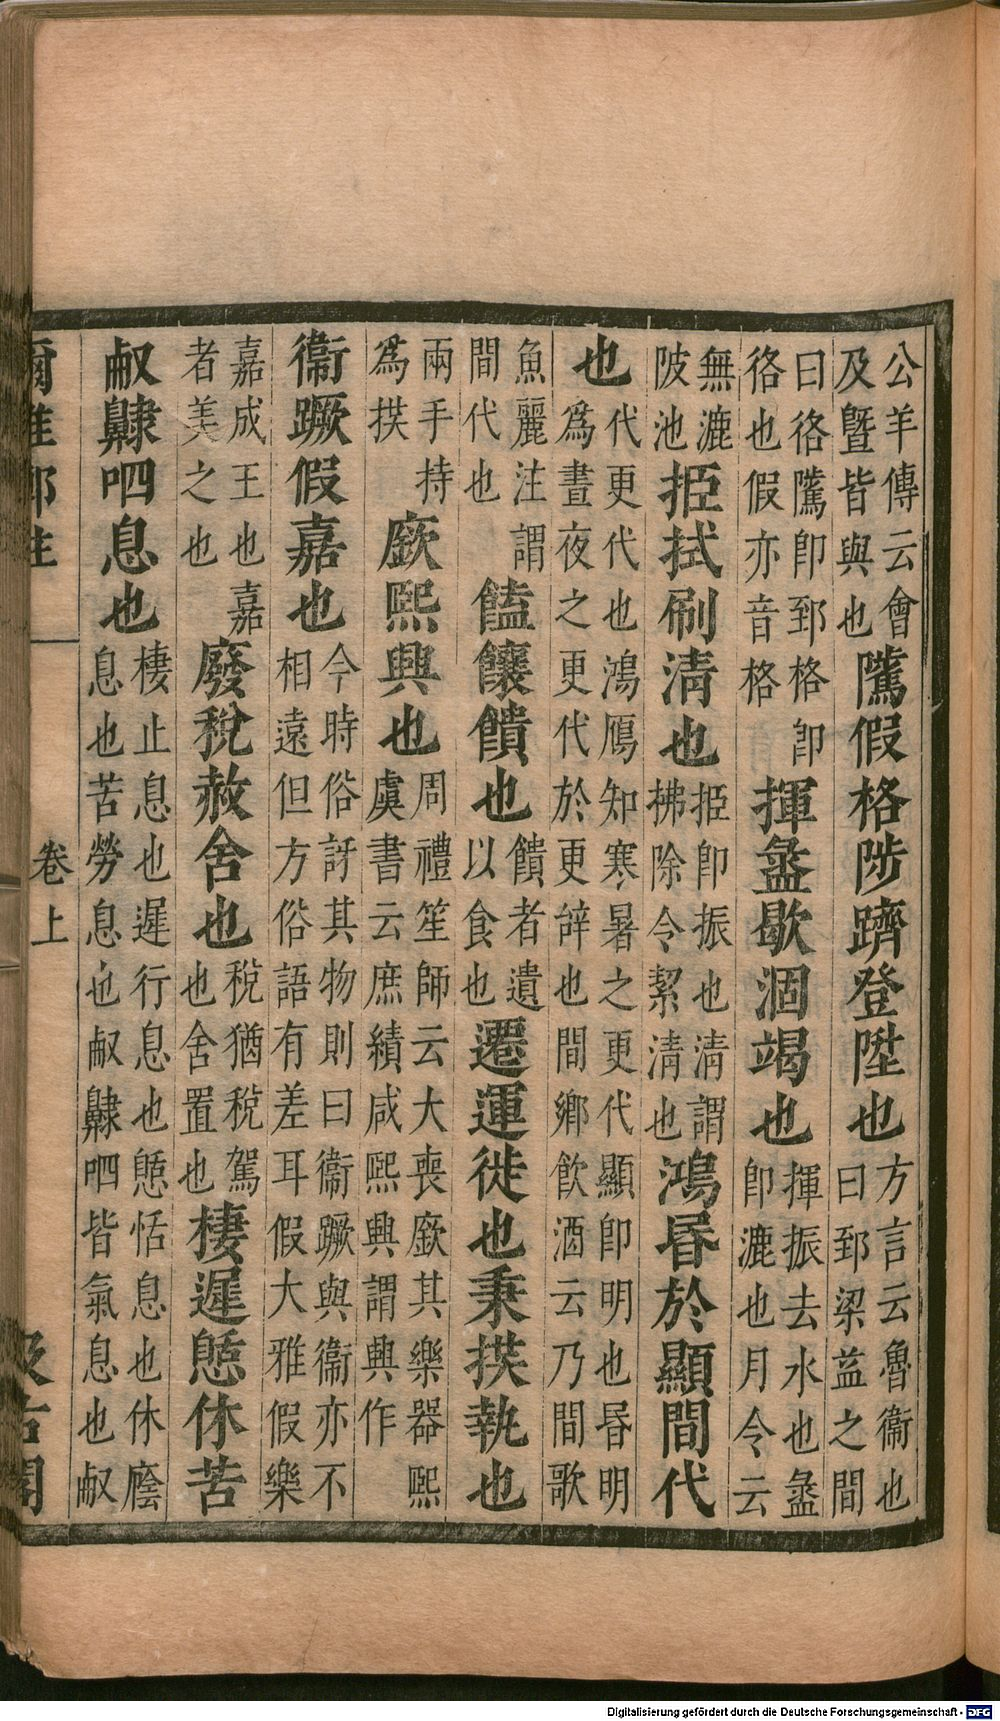 公羊傳云會
及曁皆與也
隲假格陟躋登陞也
方言云魯衞也
曰郅梁益之間
曰佫隲即郅格即
佫也假亦音格
揮盝歇涸竭也
揮振去水也盝
即漉也月令云
無漉
陂池
挋拭刷清也
挋即振也清謂
拂除令絜清也
鴻昬於顯間代
也
代更代也鴻鴈知寒暑之更代顯即明也昬明
為晝夜之更代於更辭也間鄉飲酒云乃間歌
魚麗注謂
間代也
饁饟饋也
饋者遺
以食也
遷運徙也秉拱執也
兩手持
為拱
廞熙興也
周禮笙師云大喪廞其樂器熙
虞書云庶績咸熙興謂興作
衞蹶假嘉也
今時俗訝其物則曰衞蹶與衞亦不
相遠但方俗語有差耳假大雅假樂
嘉成王也嘉
者美之也
廢稅赦舍也
稅猶稅駕
也舍置也
棲遲憩休苦
㕟齂呬息也
棲止息也遲行息也憩恬息也休廕
息也苦勞息也㕟齂呬皆氣息也㕟
爾雅郭注
卷上
汲古閣
Digitalisierung gefördert durch die Deutsche Forschungsgemeinschaft - DFG